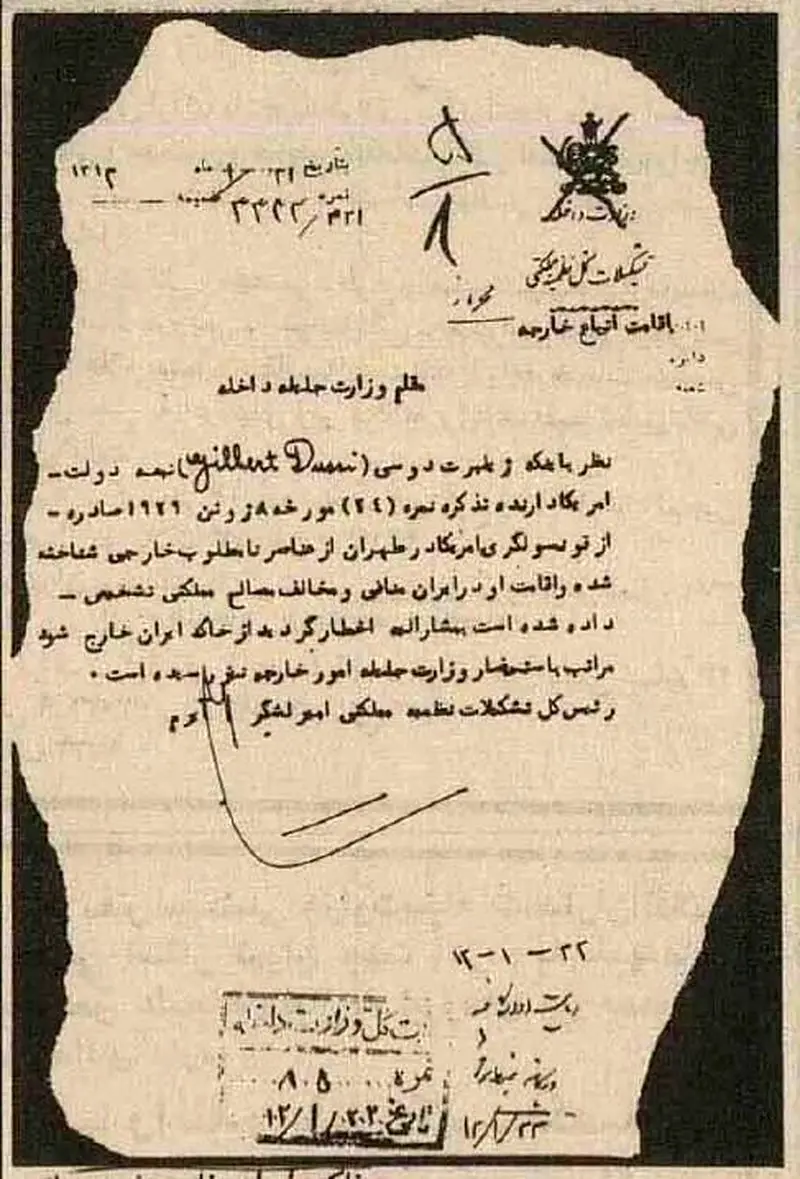 وزارت داخله
تشکیلات کل نظمیه مملکتی
محرمانه
اقامت اتباع خارجه
دایره
شعبه
بتاریخ ۲۱ ماه ۱ ۱۳۱۲
نمره ۳۳۴۲/۴۲۱ ضمیمه
۱
مقام وزارت جلیله داخله
نظر باینکه ژیلبرت دوسی (Gilbert Dussi) تبعه دولت ـ
امریکا دارنده تذکره نمره (۲٤) مورخه ۸ ژوئن ۱۹۲۹ صادره ـ
از قونسولگری امریکا در طهران از عناصر نامطلوب خارجی شناخته
شده و اقامت او در ایران منافی و مخالف مصالح مملکتی تشخیص ـ
داده شده است بمشارالیه اخطار گردید از خاک ایران خارج شود
مراتب باستحضار وزارت جلیله امور خارجه نیز رسیده است .
رئیس کل تشکیلات نظمیه مملکتی امیر لشگر آیرم
۱۲-۱-۲۲
ثبت کل وزارت داخله
نمره ۸۰۵
تاریخ ۱۲/۱/۲۲
۱۲/۱/۲۳